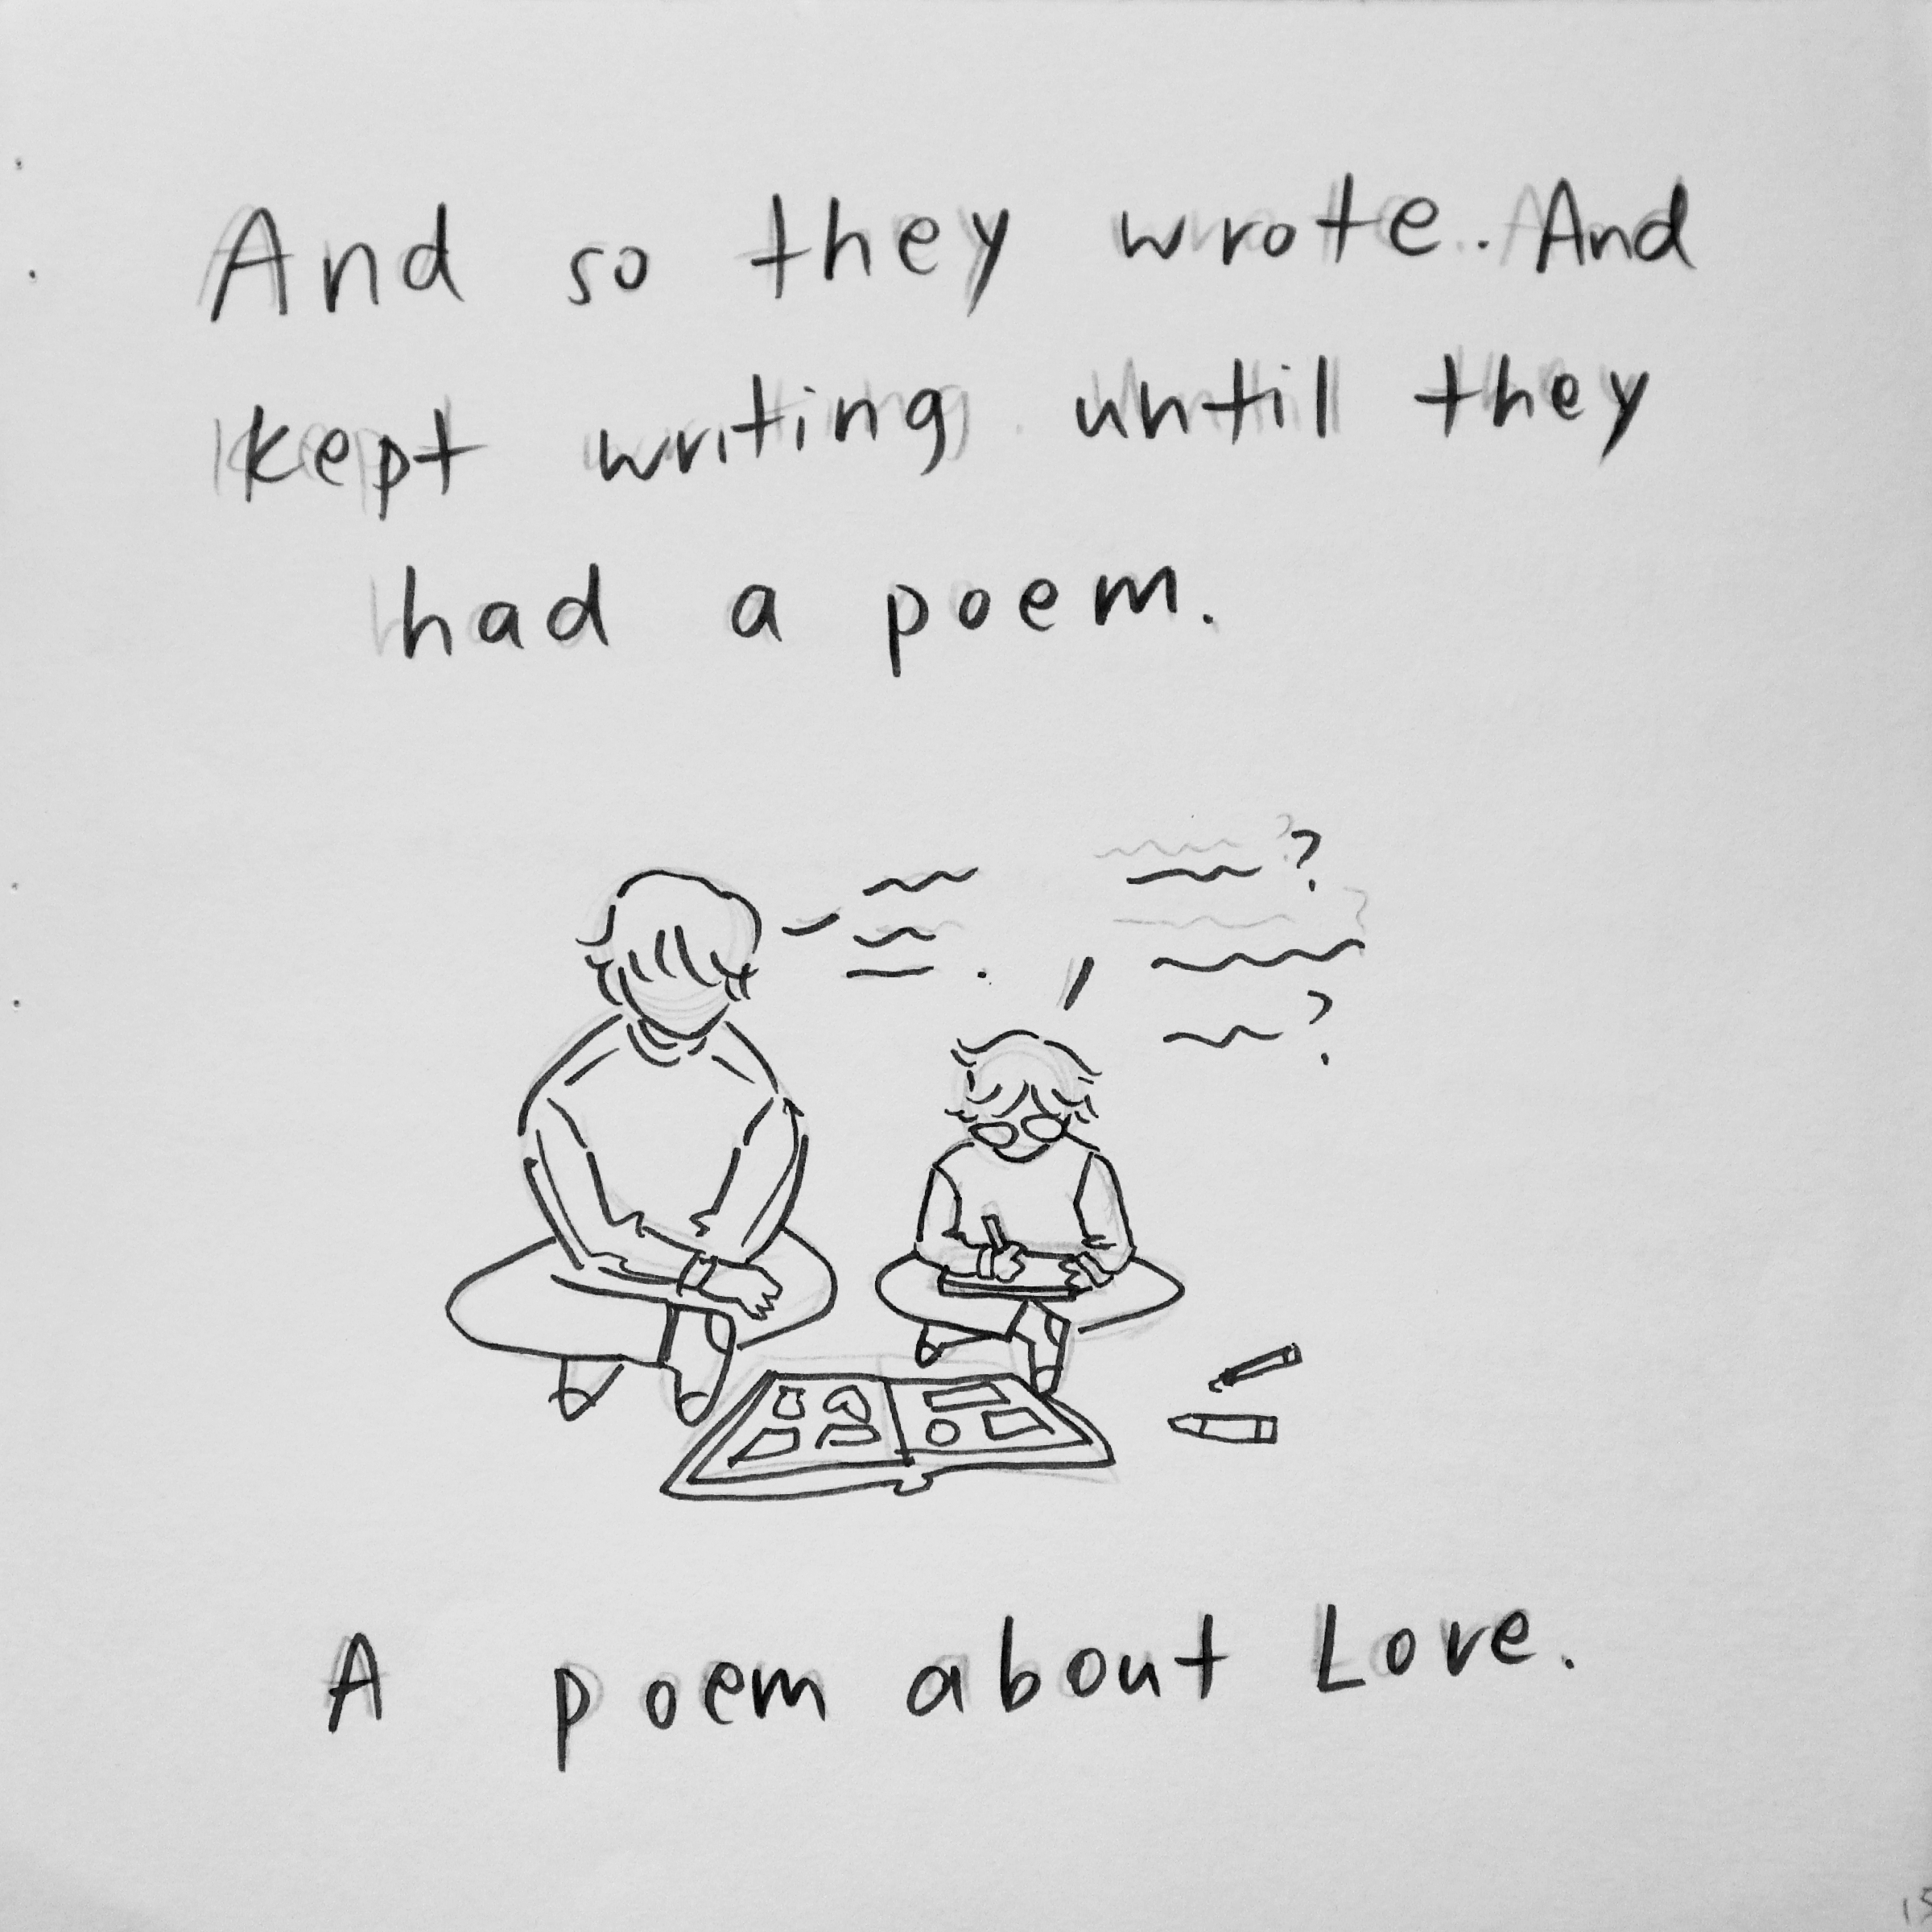 And so they wrote. And
kept writing until they
had a poem.
?
?
A poem about Love.